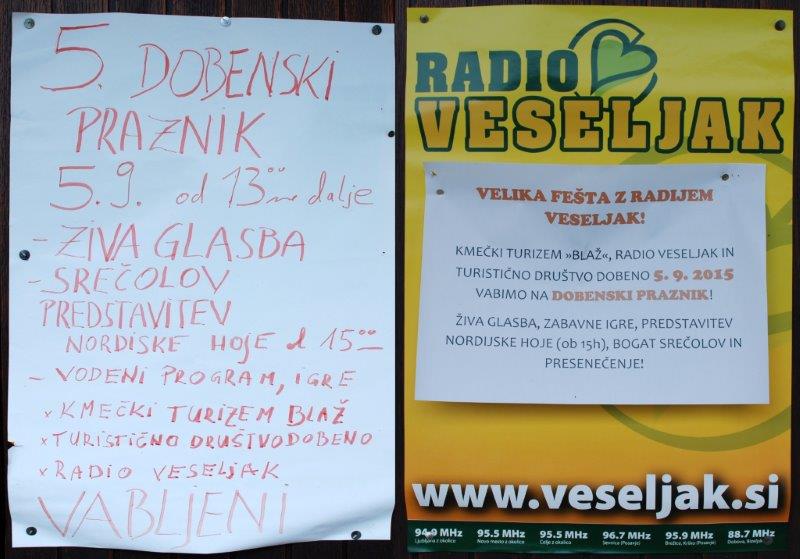 5. DOBENSKI
PRAZNIK
5.9. od 13⁰⁰ ure dalje
- ŽIVA GLASBA
- SREČOLOV
PREDSTAVITEV
NORDISKE HOJE od 15⁰⁰
- VODENI PROGRAM, IGRE
x KMEČKI TURIZEM BLAŽ
x TURISTIČNO DRUŠTVO DOBENO
x RADIO VESELJAK
VABLJENI
RADIO
VESELJAK
VELIKA FEŠTA Z RADIJEM
VESELJAK!
KMEČKI TURIZEM »BLAŽ«, RADIO VESELJAK IN
TURISTIČNO DRUŠTVO DOBENO 5. 9. 2015
VABIMO NA DOBENSKI PRAZNIK!
ŽIVA GLASBA, ZABAVNE IGRE, PREDSTAVITEV
NORDIJSKE HOJE (ob 15h), BOGAT SREČOLOV IN
PRESENEČENJE!
www.veseljak.si
94.9 MHz 95.5 MHz 95.5 MHz 96.7 MHz 95.9 MHz 88.7 MHz
Ljubljana z okolico Novo mesto z okolico Celje z okolico Sevnica (Posavje) Brežice, Krško (Posavje)